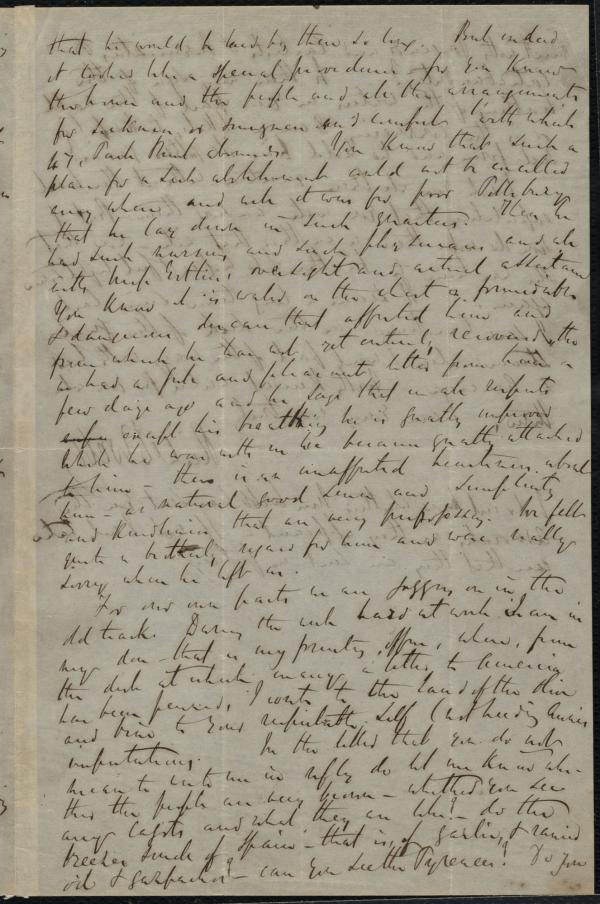 that he would be laid by there so long. But indeed
it looked like a special providence – for you know
the house and the people and all the arrangements
for sickness or surgeon and comfort with which
47, Park Road abounds. You know that such a
plan for a sick establishment could not be excelled
any where and well it was for poor Pillsbury
that he lay down in such quarters. Then he
had such nurses and such physicians and all
with oversight and actual assistance
You know it is water on the chest a formidable
& dangerous disease that affected him and
from which he has not yet entirely recovered, tho
we had a and pleasant letter from him a
few days ago and he says that in all respects
except his breathing he is greatly improved
While he was with us we became greatly attached
to him – there is an unaffected heartiness about
him – as natural good sense and simplicity
and kindliness that are very prepossessing. We felt
quite a brotherly regard for him and were really
sorry when he left us.
For our own parts we are jogging on in the
old track. During the week hard at work I am in
my den – that is my printing office, where, from
the desk at which many a letter to America
has been penned, I write to the land of the olive
and vine to your self (not heeding
imputations. In the letter that you do not
mean to write me in reply do let me know all
this the people are very brown – whether you see
any Cagots and what they are like? – do the
breezes smack of Spain – that is, of garlic, & rancid
oil & gazpacho? – can you see the Pyrenees? Do you